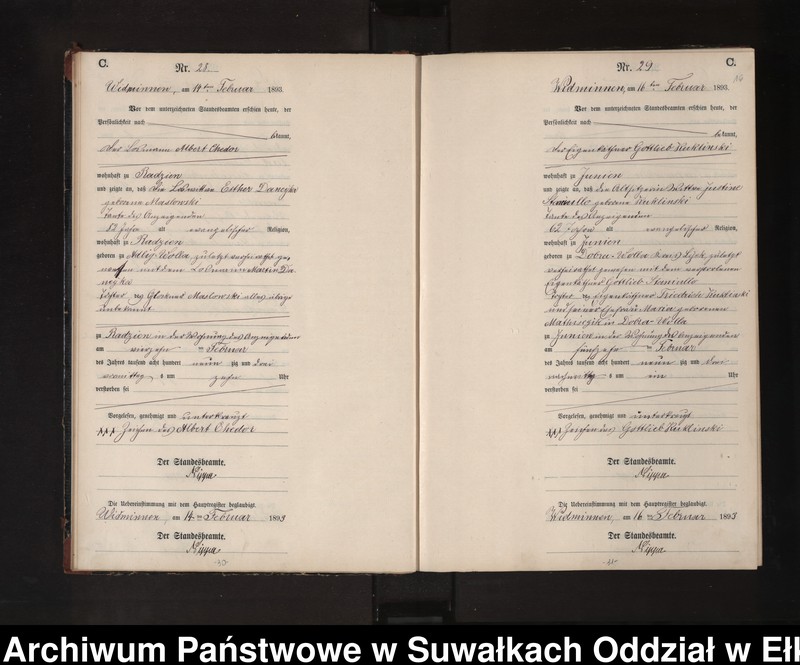 C.
Nr. 28
Widminnen, am 14ten Februar 1893.
Vor dem unterzeichneten Standesbeamten erschien heute, der
Persönlichkeit nach
bekannt,
der Losmann Albert Chedor
wohnhaft zu Radzien
und zeigte an, daß die Losmittin Esther Danczyka
geborene Maslowski
Tante des Anzeigenden
52 Jahre alt evangelischer Religion,
wohnhaft zu Radzien
geboren zu Adlig Wolla, zuletzt verheirathet ge
wesen mit dem Losmann Martin Da
nczyka
Tochter des Maslowski alles übrige
unbekannt
zu Radzien in der Wohnung des Anzeigenden
am vierzehn ten Februar
des Jahres tausend acht hundert neun zig und drei
vormittag s um zehn Uhr
verstorben sei
Vorgelesen, genehmigt und unterkreuzt
+++ Zeichen des Albert Chedor
Der Standesbeamte.
Nippa
Die Uebereinstimmung mit dem Hauptregister beglaubigt.
Widminnen, am 14ten Februar 1893
Der Standesbeamte.
Nippa
C.
Nr. 29
Widminnen, am 16ten Februar 1893.
Vor dem unterzeichneten Standesbeamten erschien heute, der
Persönlichkeit nach
bekannt,
der Eigenkäthner Gottlieb Kuklinski
wohnhaft zu Junien
und zeigte an, daß die Altsitzerin Wittwe Justine
geborene Kuklinski
Tante des Anzeigenden
62 Jahre alt evangelischer Religion,
wohnhaft zu Junien
geboren zu Dobra-Wolla Kreis Lyck, zuletzt
verheirathet gewesen mit dem verstorbenen
Eigenkäthner Gottlieb
Tochter des Eigenkäthner Friedrich Kuklinski
und seiner Ehefrau Maria geborenen
in Dobra-Wolla
zu Junien in der Wohnung des Anzeigenden
am fünfzehn ten Februar
des Jahres tausend acht hundert neun zig und drei
nachmittag s um ein Uhr
verstorben sei
Vorgelesen, genehmigt und unterkreuzt
+++ Zeichen des Gottlieb Kuklinski
Der Standesbeamte.
Nippa
Die Uebereinstimmung mit dem Hauptregister beglaubigt.
Widminnen, am 16ten Februar 1893
Der Standesbeamte.
Nippa
Archiwum Państwowe w Suwałkach Oddział w Eł